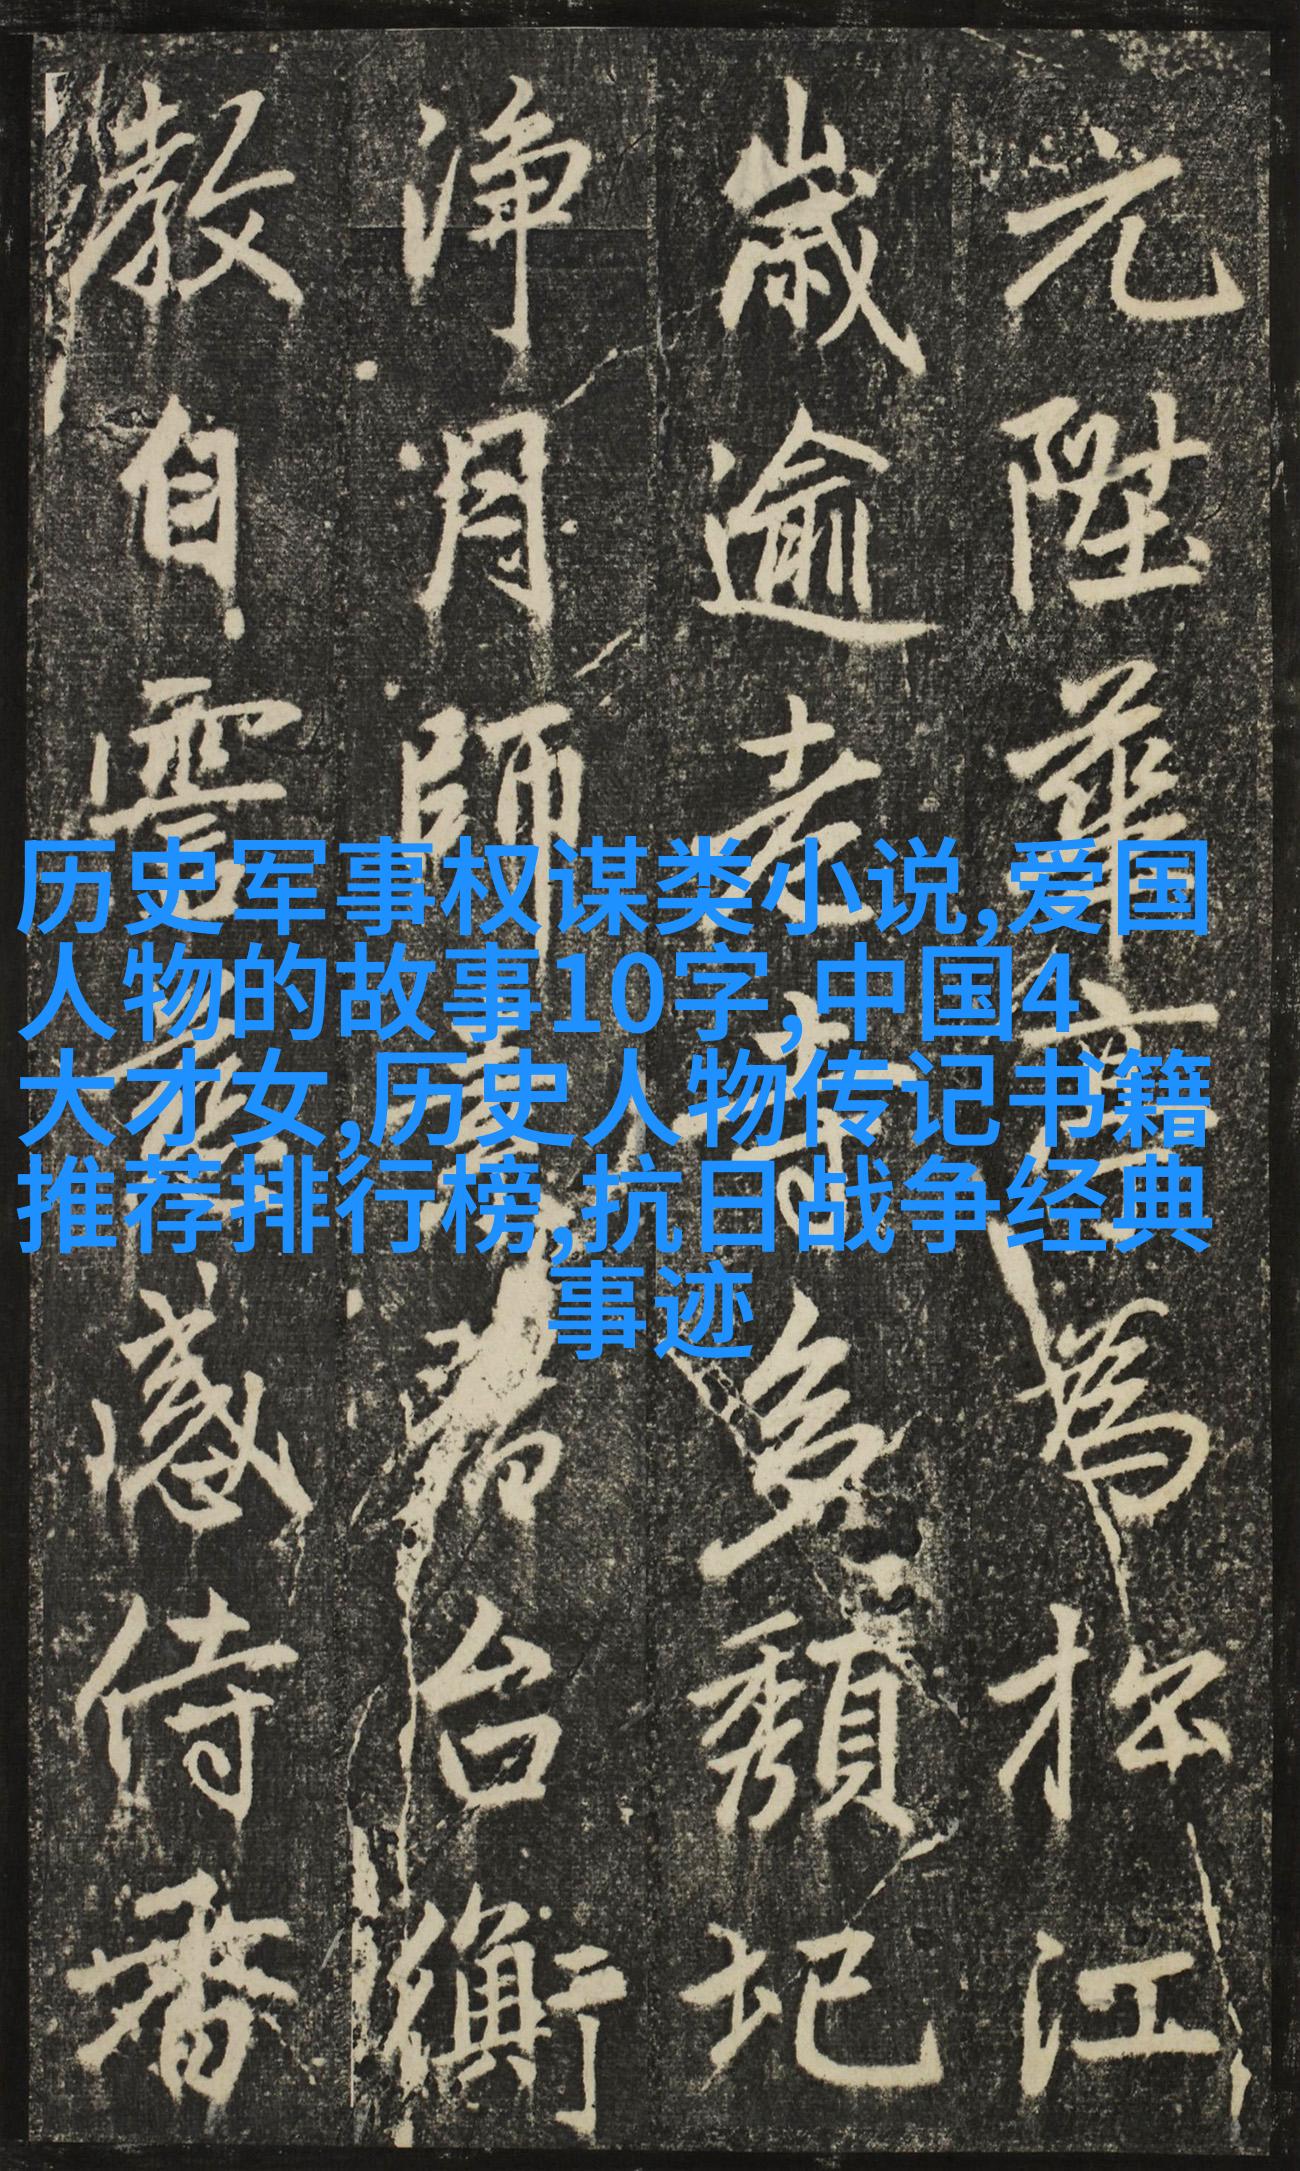 元陞華序為於江
歲逾老壽多頹圮
淨月師
台衡
教自
感侍香
历史军事权谋类小说,爱国
人物的故事10字,中国4
大才女,历史人物传记书籍
推荐排行榜,抗日战争经典
事迹